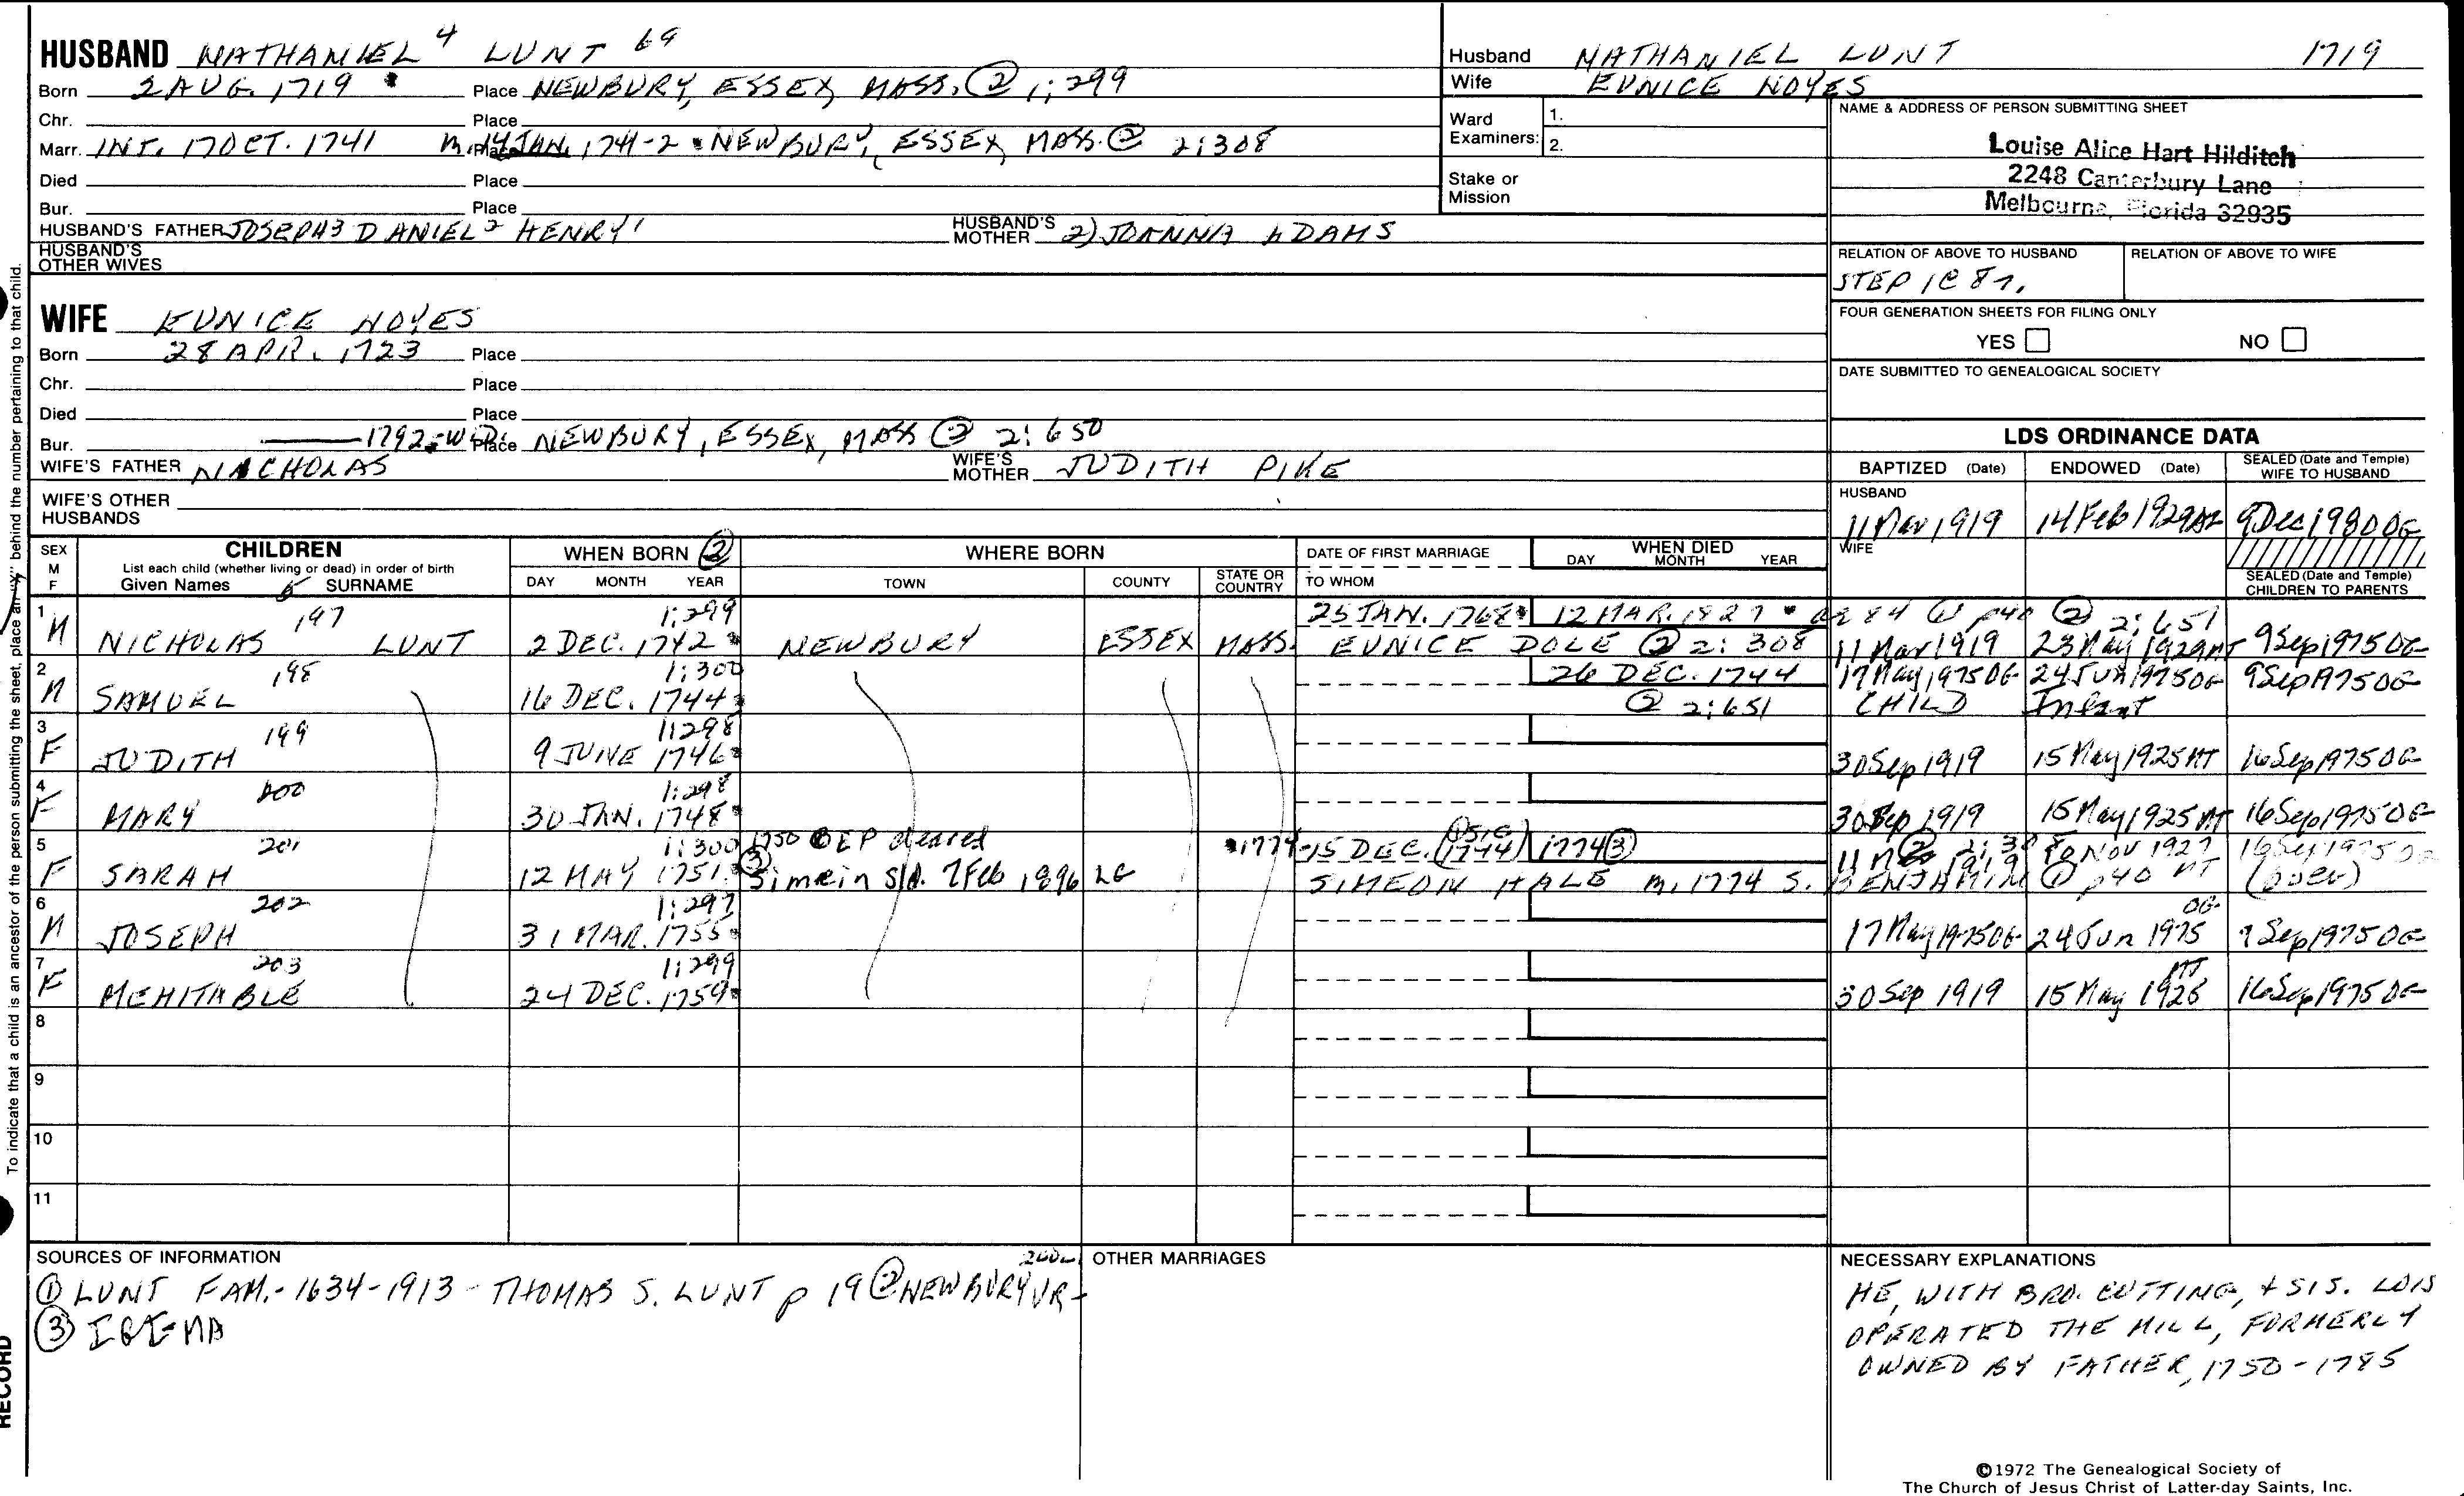 HUSBAND NATHANIEL 4 LUNT 69
Born 2 AUG. 1719 Place NEWBURY, ESSEX, MASS. ② 1:299
Chr. Place
Marr. INT. 17 OCT. 1741 m. 14 JAN. 1741-2 Place NEWBURY, ESSEX, MASS. ② 2:308
Died Place
Bur. Place
HUSBAND'S FATHER JOSEPH 3 DANIEL 2 HENRY 1 HUSBAND'S MOTHER 2) JOANNA ADAMS
HUSBAND'S OTHER WIVES
WIFE EUNICE NOYES
Born 28 APR. 1723 Place
Chr. Place
Died Place
Bur. 1792 - WID. Place NEWBURY, ESSEX, MASS ② 2:650
WIFE'S FATHER NICHOLAS WIFE'S MOTHER JUDITH PIKE
WIFE'S OTHER HUSBANDS
Husband NATHANIEL LUNT 1719
Wife EUNICE NOYES
Ward Examiners: 1.
2.
Stake or Mission
NAME & ADDRESS OF PERSON SUBMITTING SHEET
Louise Alice Hart Hilditch
2248 Canterbury Lane
Melbourne, Florida 32935
RELATION OF ABOVE TO HUSBAND RELATION OF ABOVE TO WIFE
STEP 1C 8r.
FOUR GENERATION SHEETS FOR FILING ONLY
YES NO
DATE SUBMITTED TO GENEALOGICAL SOCIETY
LDS ORDINANCE DATA
BAPTIZED (Date) ENDOWED (Date) SEALED (Date and Temple) WIFE TO HUSBAND
HUSBAND
11 Mar 1919 14 Feb 1929 9 Dec 1980 OG
WIFE
SEALED (Date and Temple) CHILDREN TO PARENTS
SEX M F CHILDREN WHEN BORN ② WHERE BORN DATE OF FIRST MARRIAGE WHEN DIED
List each child (whether living or dead) in order of birth
Given Names SURNAME DAY MONTH YEAR TOWN COUNTY STATE OR COUNTRY TO WHOM DAY MONTH YEAR
1 197 1:299 25 JAN. 1768 12 MAR. 1827 84 ① p40 ② 2:651
M NICHOLAS LUNT 2 DEC. 1742 NEWBURY ESSEX MASS. EUNICE DOLE ② 2:308 11 Mar 1919 23 May 1929 9 Sep 1975 OG
2 198 1:300 26 DEC. 1744 17 May 1975 OG 24 Jun 1975 OG 9 Sep 1975 OG
M SAMUEL 16 DEC. 1744 ② 2:651 CHILD Infant
3 199 1:298
F JUDITH 9 JUNE 1746 30 Sep 1919 15 May 1925 MT 16 Sep 1975 OG
4 200 1:298
F MARY 30 JAN. 1748 30 Sep 1919 15 May 1925 MT 16 Sep 1975 OG
5 201 1:300 1750 BEP cleared 1774 15 DEC. (SIC) (1744) 1774 ③ ② 2:308 NOV 1927 16 Sep 1975 OG
F SARAH 12 MAY 1751 ③ 7 Feb 1896 LG SIMEON HALE m. 1774 S. BENJAMIN ① p40 MT
6 202 1:297 OG
M JOSEPH 31 MAR. 1755 17 May 1975 OG 24 Jun 1975 9 Sep 1975 OG
7 203 1:299 MT
F MEHITABLE 24 DEC. 1759 30 Sep 1919 15 May 1925 16 Sep 1975 OG
8
9
10
11
SOURCES OF INFORMATION
① LUNT FAM. - 1634-1913 - THOMAS S. LUNT p 19 ② NEWBURY VR
③ IGI-MA
OTHER MARRIAGES
NECESSARY EXPLANATIONS
HE, WITH BRO. CUTTING, & SIS. LOIS
OPERATED THE MILL, FORMERLY
OWNED BY FATHER, 1750-1785
©1972 The Genealogical Society of
The Church of Jesus Christ of Latter-day Saints, Inc.
To indicate that a child is an ancestor of the person submitting the sheet, place an "X" behind the number pertaining to that child.
RECORD